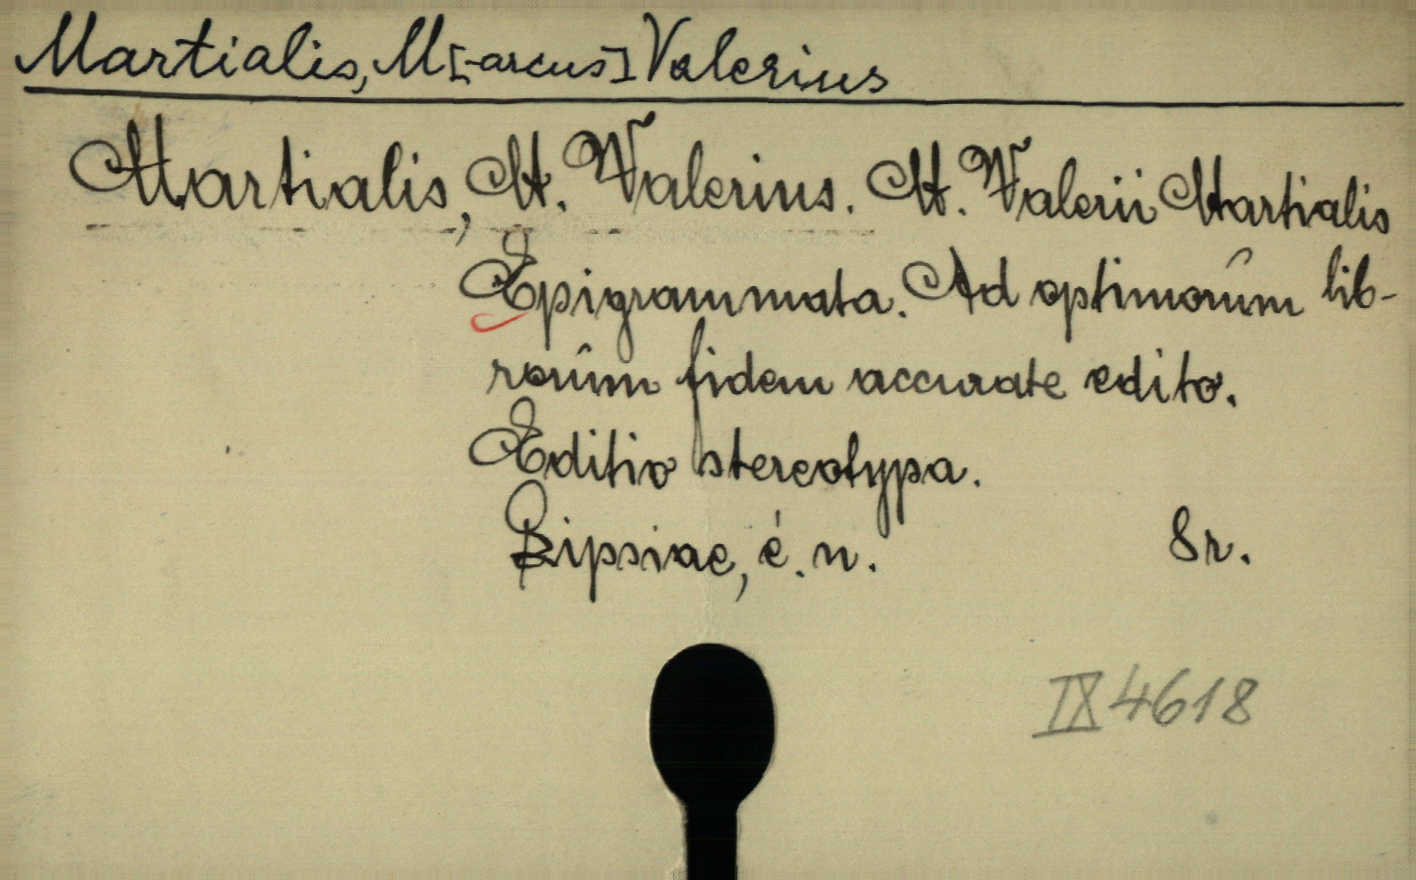 Martialis, M[-arcus] Valerius
Martialis, M. Valerius. M. Valerii Martialis
Epigrammata. Ad optimorûm lib-
rorûm fidem accurate edito.
Editio stereotypa.
Lipsiae, é. n. 8r.
IX 4618